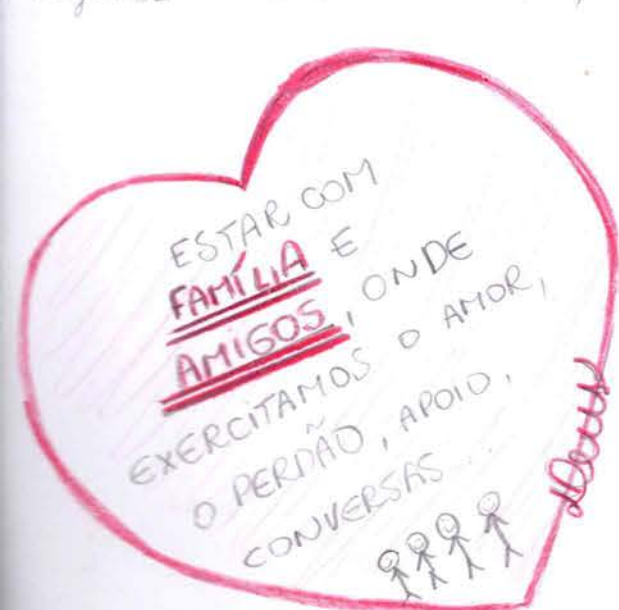 ESTAR COM
FAMÍLIA E
AMIGOS, ONDE
EXERCITAMOS O AMOR,
O PERDÃO, APOIO,
CONVERSAS...
Deus